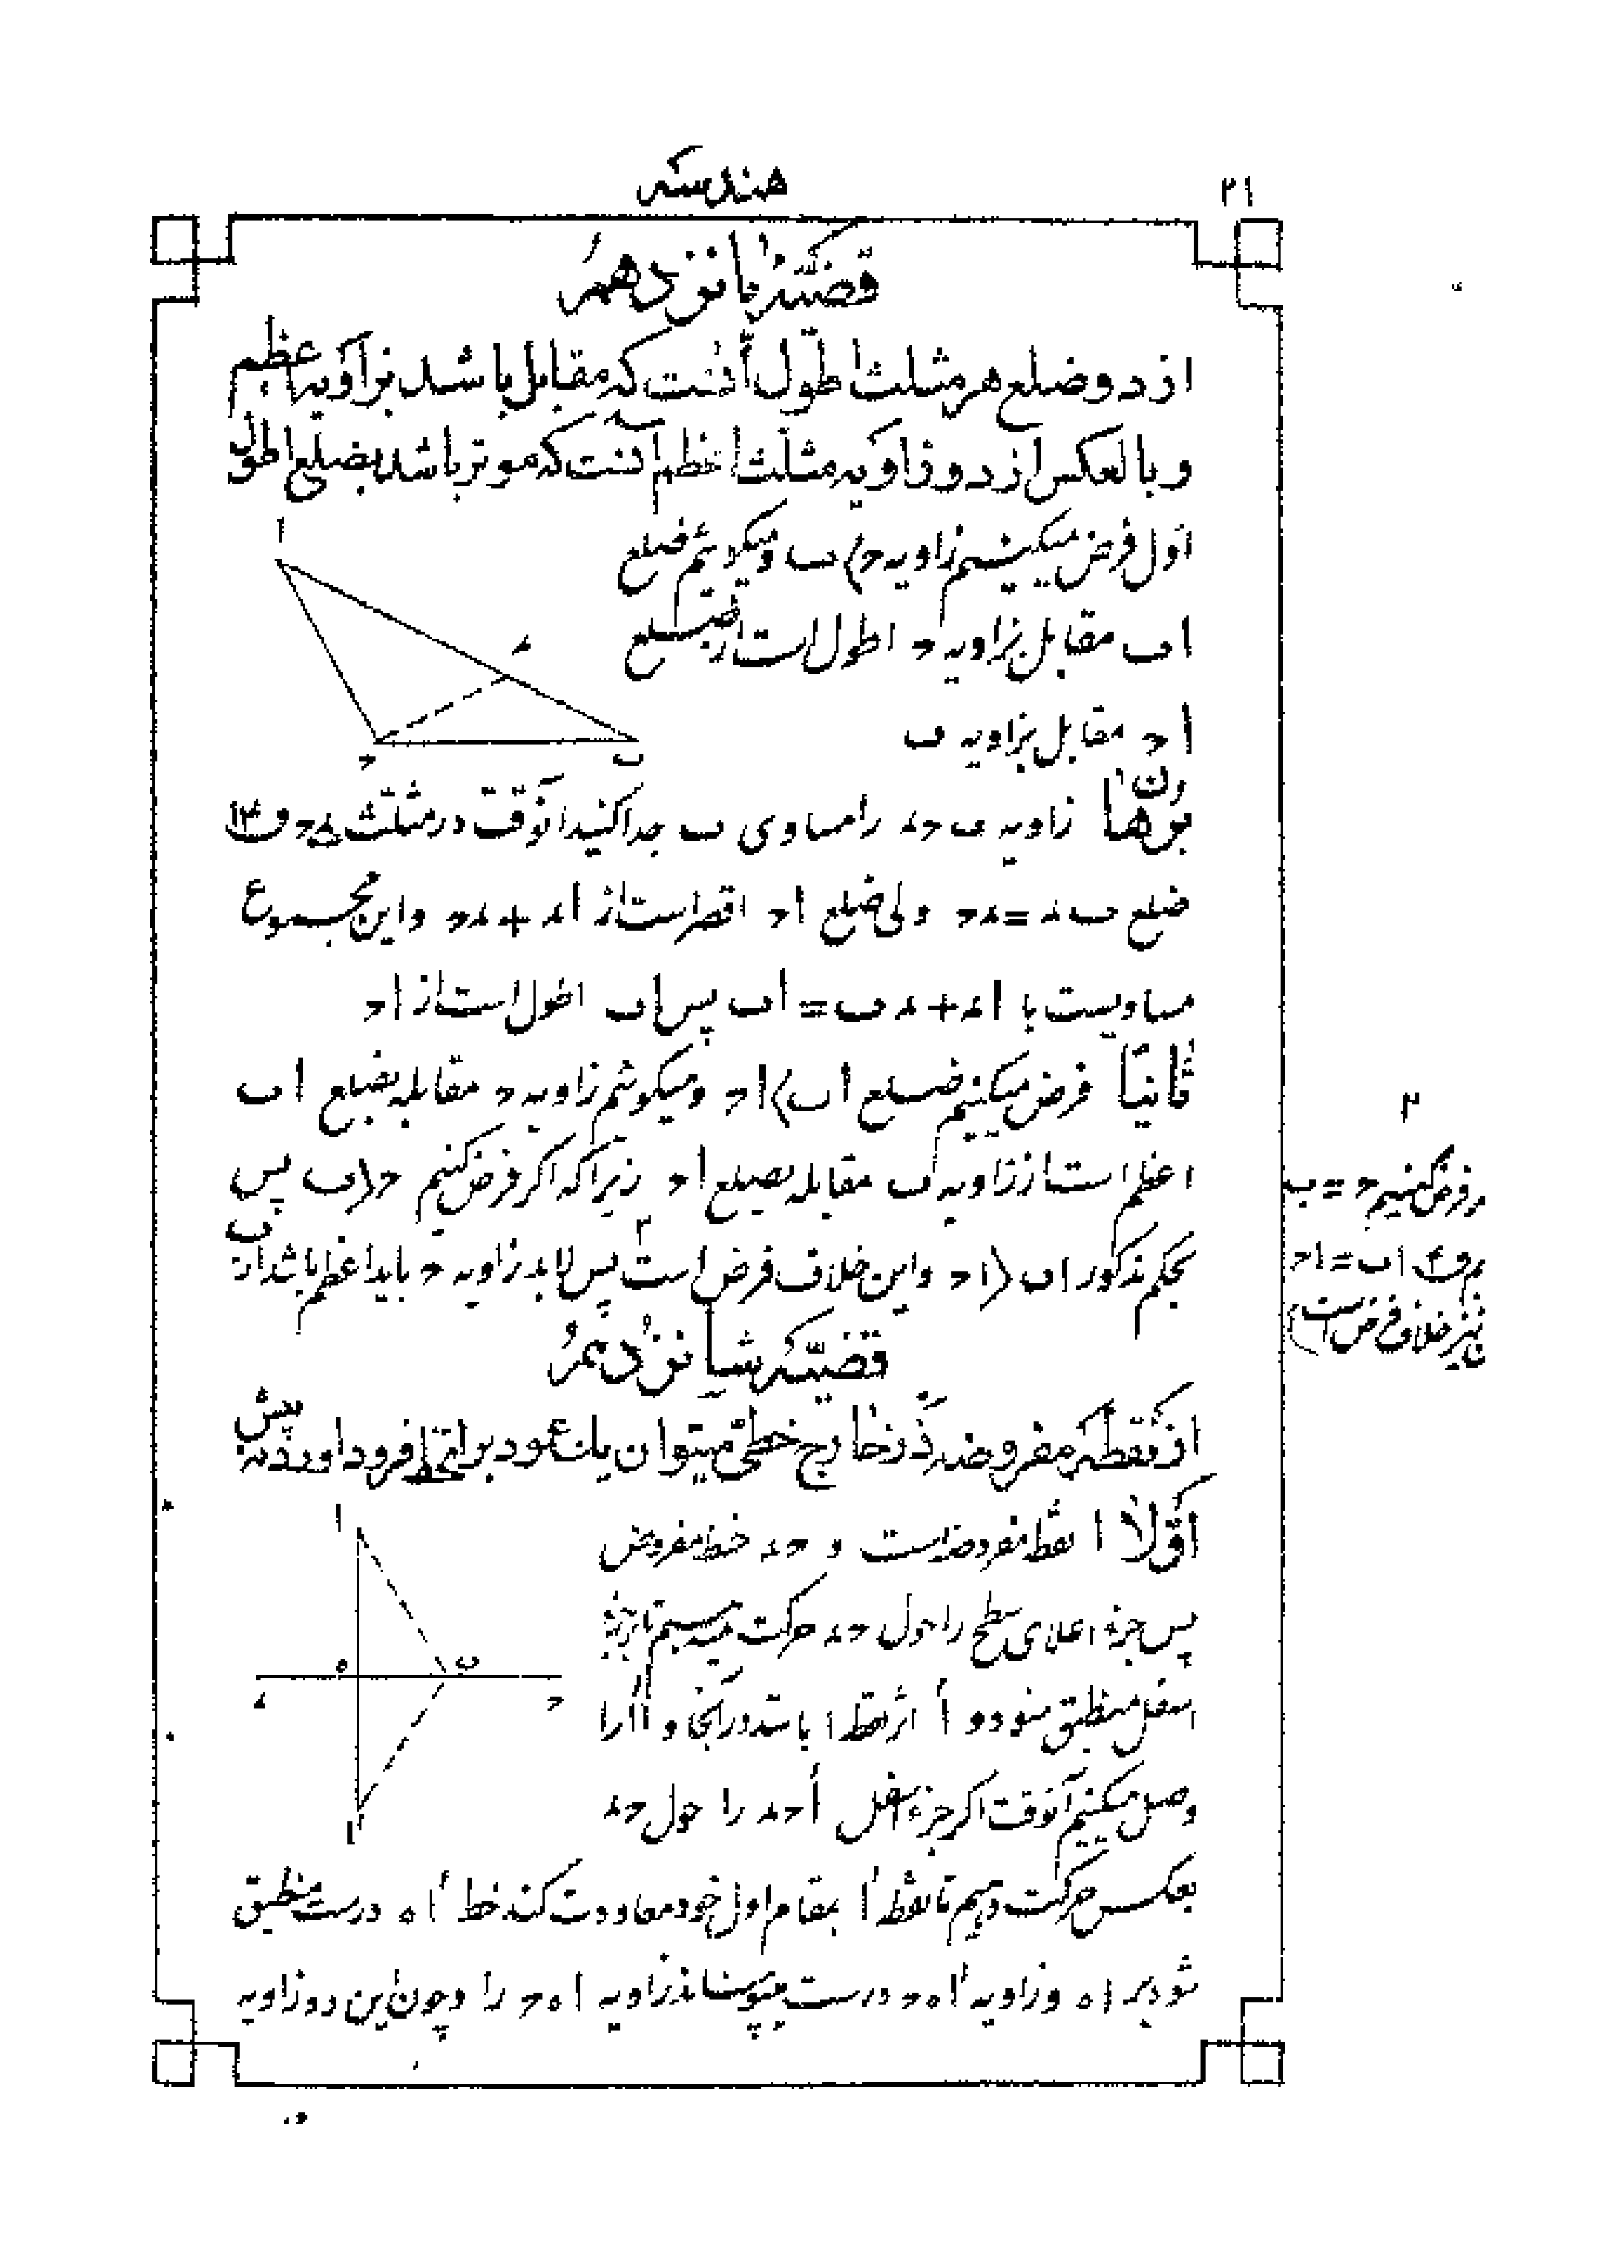 ۲۱
هندسه
قضیّهٔ پانزدهم
از دو ضلع هر مثلث اطول آنست که مقابل باشد بزاویه اعظم
و بالعکس از دو زاویه مثلث اعظم آنست که موتر باشد بضلع اطول
اول فرض میکنیم زاویه ح〉ب و میگوئیم ضلع
اب مقابل بزاویه ح اطول است از ضلع
اح مقابل بزاویه ب
ا
ء
ح
ب
برهان زاویه ب ح ء را مساوی ب جدا کنید آنوقت در مثلث ء ح ب ۱۳
ضلع ب ء = ء ح ولی ضلع اح اقصر است از اء + ء ح و این مجموع
مساویست با اء + ء ب = اب پس اب اطول است از اح
ثانیاً فرض میکنیم ضلع اب〉اح و میگوئیم زاویه ح مقابله بضلع اب
اعظم است از زاویه ب مقابله بضلع اح زیرا که اگر فرض کنیم ح〈ب پس
بحکم مذکور اب〈اح و این خلاف فرض است ۲ پس لابد زاویه ح باید اعظم باشد از ب
۲
و فرض کنیم ح = ب
اب = اح
نیز خلاف فرض است
قضیّهٔ شانزدهم
از نقطهٔ مفروضه در خارج خطی میتوان یک عمود بر آنخط فرود آورد نه بیش
اوّلاً ا نقطه مفروضه است و ح ء خط مفروض
پس جزء اعلای سطح را حول ح ء حرکت میدهیم تا بر جزء
اسفل منطبق شود و اَ اثر نقطه ا باشد در آنجا و ااَ را
وصل میکنیم آنوقت اگر جزء اسفل اَ ح ء را حول ح ء
ا
ه
ب
ء
ح
اَ
بعکس حرکت دهیم تا نقطه اَ بمقام اول خود معاودت کند خط اَ ه درست منطبق
شود بر ا ه و زاویه اَ ه ح درست میپوشاند زاویه ا ه ح را و چون این دو زاویه